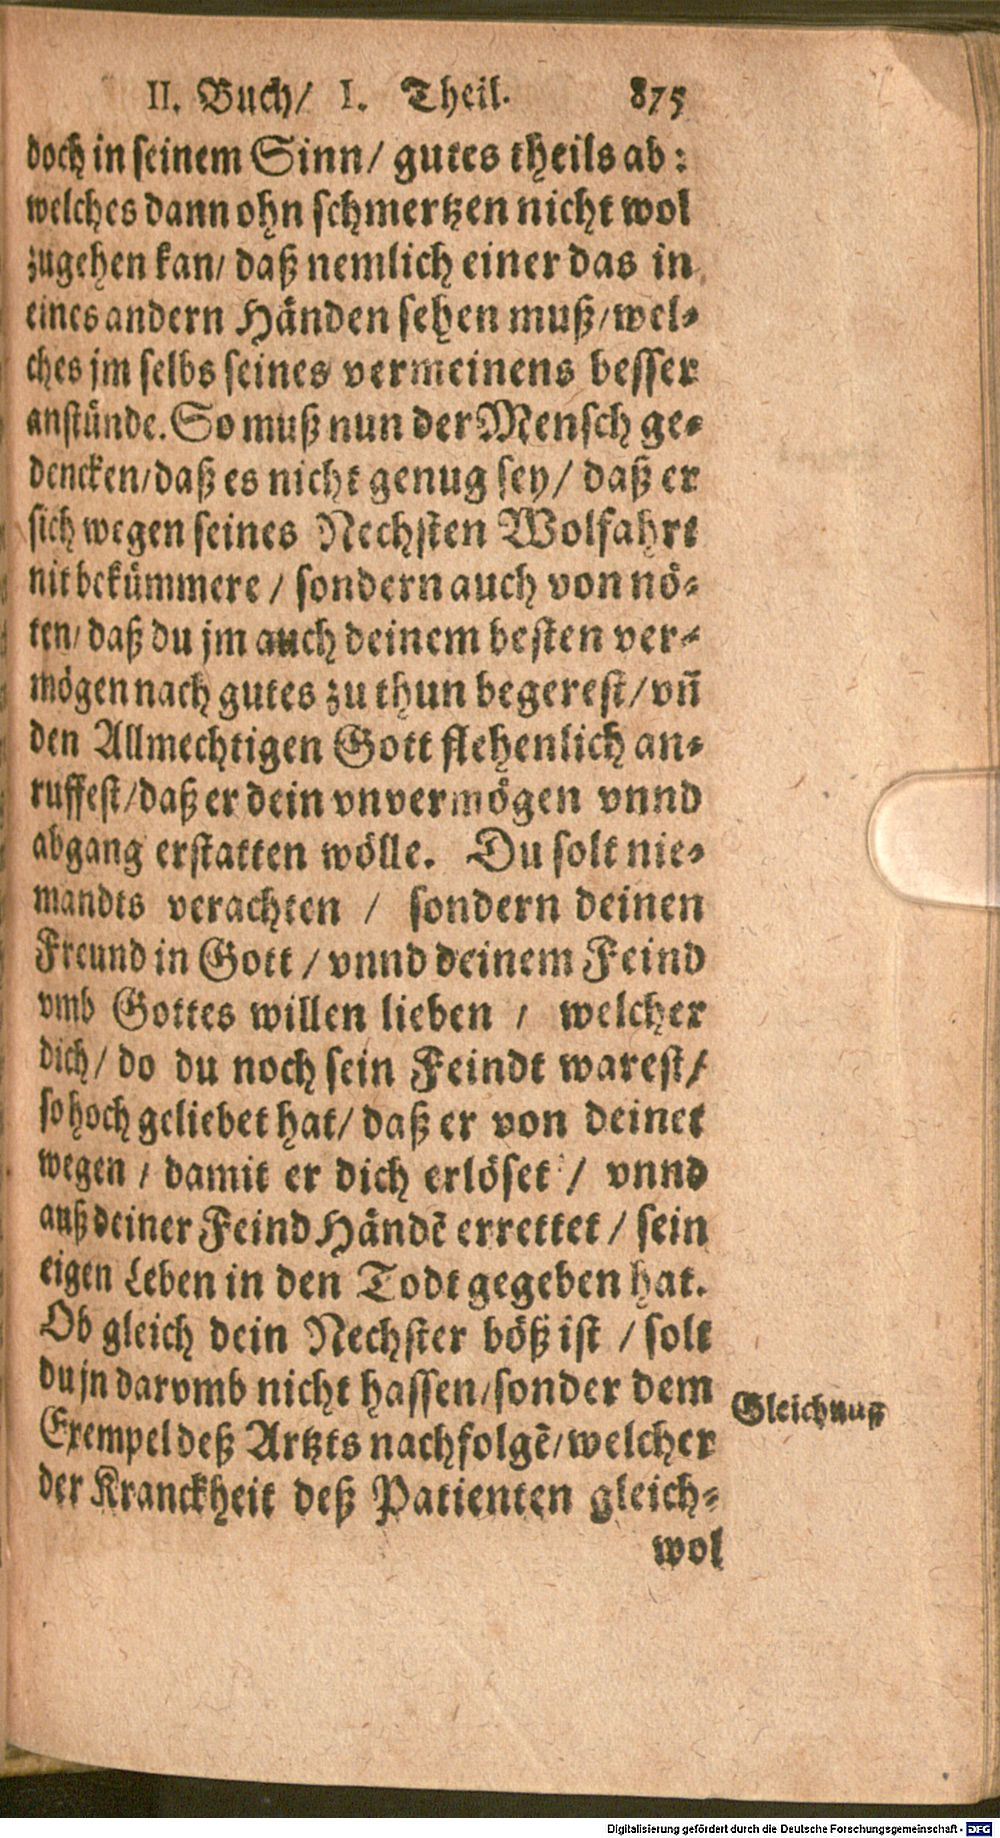 II. Buch/ I. Theil. 875
doch in seinem Sinn/ gutes theils ab:
welches dann ohn schmertzen nicht wol
zugehen kan/ daß nemlich einer das in
eines andern Händen sehen muß/ wel-
ches jm selbs seines vermeinens besser
anstünde. So muß nun der Mensch ge-
dencken/ daß es nicht genug sey/ daß er
sich wegen seines Nechsten Wolfahrt
nit bekümmere/ sondern auch von nö-
ten/ daß du jm auch deinem besten ver-
mögen nach gutes zu thun begerest/ vn̄
den Allmechtigen Gott flehenlich an-
ruffest/ daß er dein vnvermögen vnnd
abgang erstatten wölle. Du solt nie-
mandts verachten / sondern deinen
Freund in Gott / vnnd deinem Feind
vmb Gottes willen lieben / welcher
dich/ do du noch sein Feindt warest/
so hoch geliebet hat/ daß er von deinet
wegen / damit er dich erlöset / vnnd
auß deiner Feind Händē errettet / sein
eigen Leben in den Todt gegeben hat.
Ob gleich dein Nechster böß ist / solt
du jn darvmb nicht hassen/ sonder dem
Exempel deß Artzts nachfolgē/ welcher
der Kranckheit deß Patienten gleich-
wol
Gleichnuß
Digitalisierung gefördert durch die Deutsche Forschungsgemeinschaft - DFG